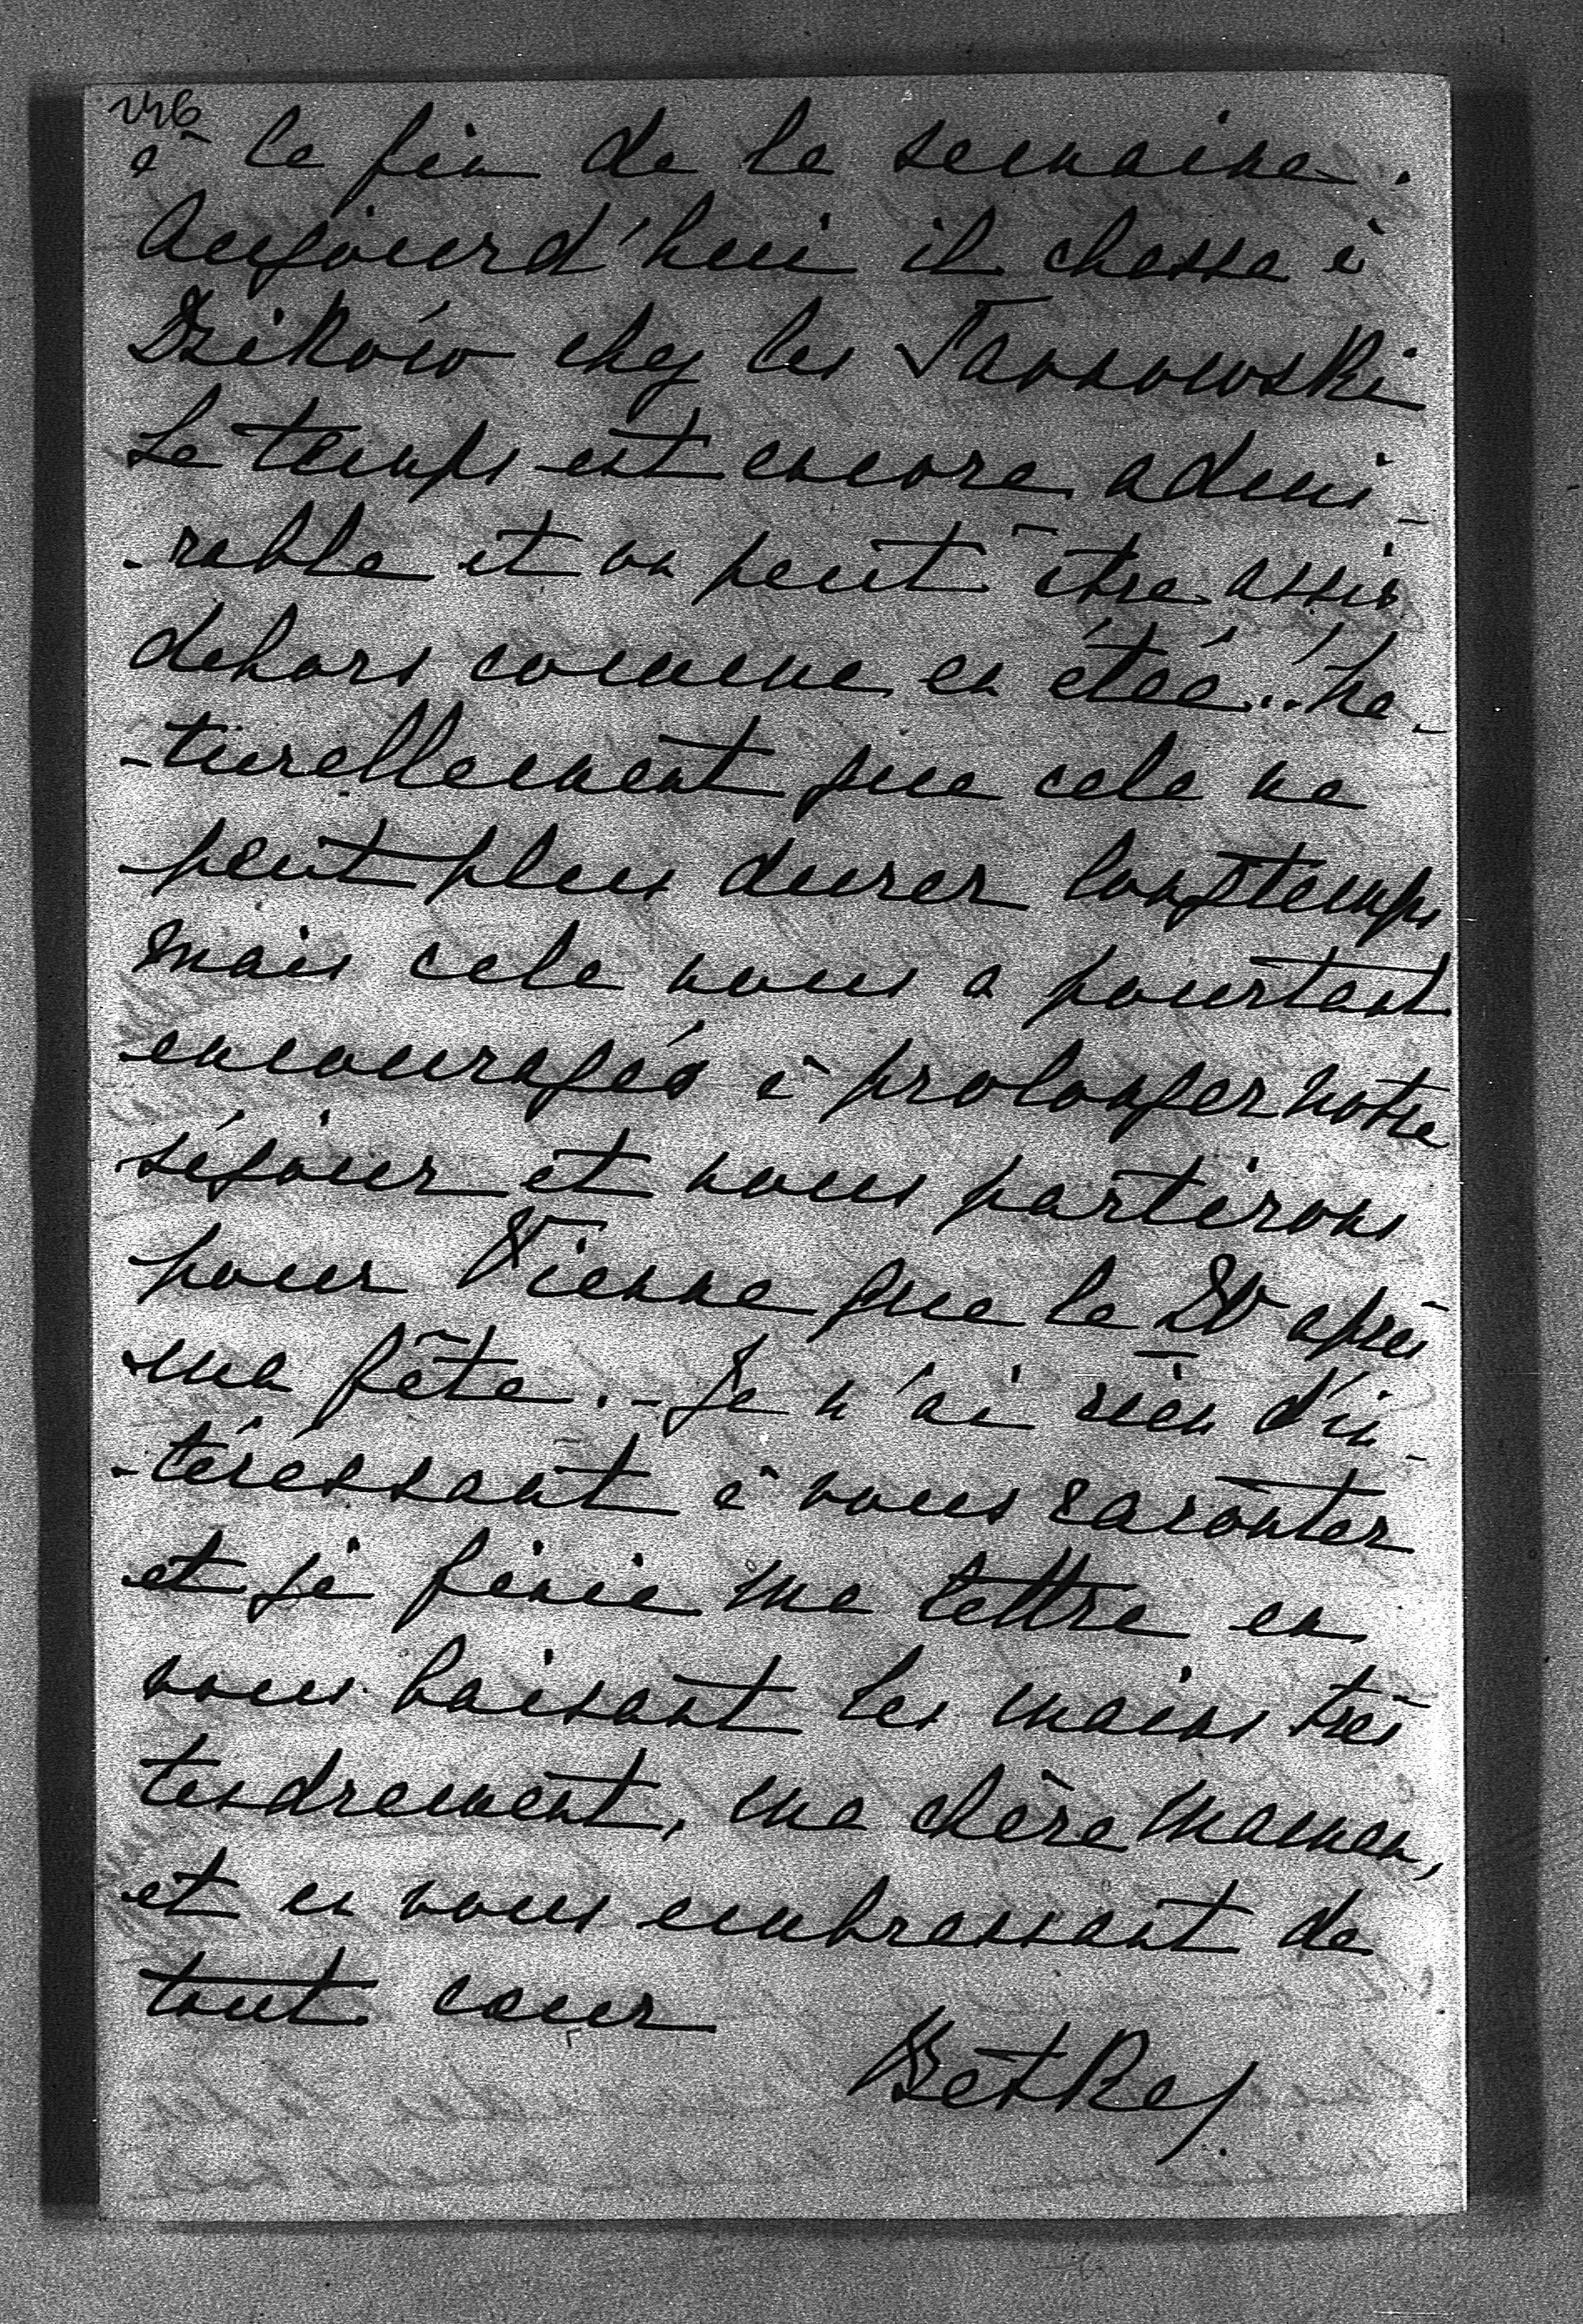 246
à la fin de la semaine.
Aujourd'hui il chasse à
Dzików chez les Tarnowski
Le temps est encore admi-
-rable et on peut être assis
dehors comme en étée.. Na-
-turellement que cela ne
peut plus durer longtemps
mais cela nous a pourtant
encouragés à prolonger notre
séjour et nous partirons
pour Vienne que le 20 après
ma fête. - Je n'ai rien d'in-
-téressant à vous raconter
et je finie ma lettre en
vous baisant les mains très
tendrement, ma chère Maman,
et en vous embrassant de
tout cœur
Betka